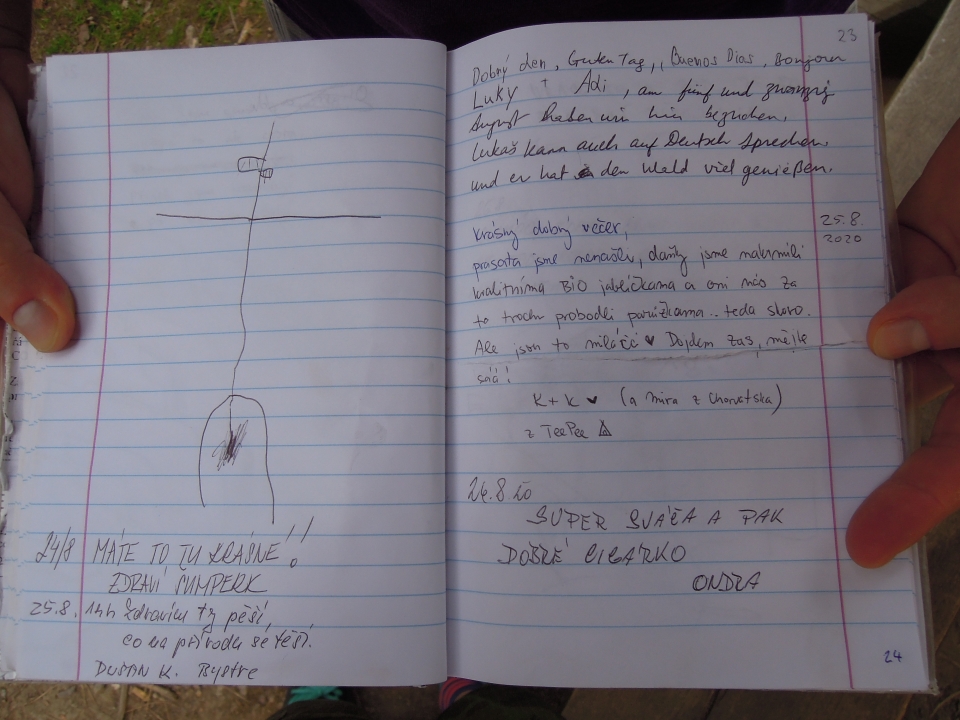 24/8 MÁTE TO TU KRÁSNÉ!!
ZDRAVÍ ŠUMPERK
25.8. 14h Zdravím ty pěší,
co na přírodu se těší.
DUŠAN K. Bystre
23
Dobrý den, Guten Tag, Buenos Dias, Bonjour
Luky + Adi, am fünf und zwanzig
August haben wir hier bezuchen,
Lukáš kann auch auf Deutsch sprechen,
und er hat den Wald viel genießen.
25.8.
2020
Krásný dobrý večer,
prasata jsme nenašli, daňky jsme nakrmili
kvalitníma BIO jablíčkama a oni nás za
to trochu probodli parůžkama.. teda skoro.
Ale jsou to miláčci ♥ Dojdem zas, mějte
sáá!
K + K ♥ (a mira z Chorvatska)
z TeePee
26.8.20
SUPER SVAČA A PAK
DOBRÉ CIGÁRKO
ONDRA
24